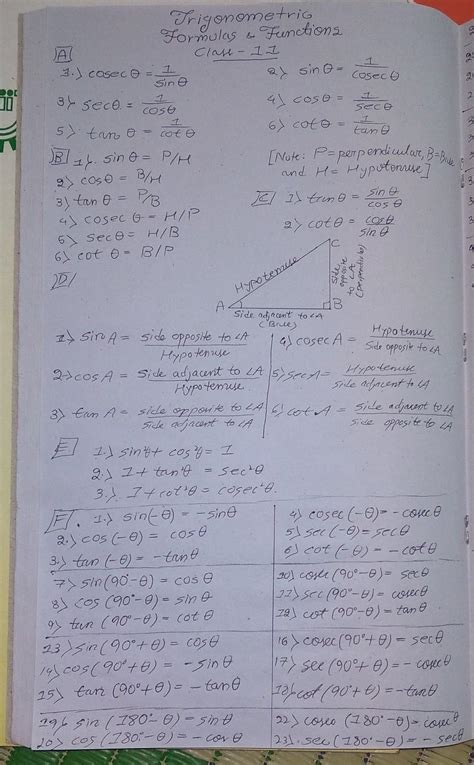 Trigonometric
Formulas & Functions
Class - 11
A
1.> cosecθ = 1/sinθ
2> sinθ = 1/cosecθ
3> secθ = 1/cosθ
4> cosθ = 1/secθ
5> tanθ = 1/cotθ
6> cotθ = 1/tanθ
B 1>. sinθ = P/H
2> cosθ = B/H
3> tanθ = P/B
4> cosecθ = H/P
5> secθ = H/B
6> cotθ = B/P
[Note: P=perpendicular, B=Base
and H = Hypotenuse]
C 1> tanθ = sinθ/cosθ
2> cotθ = cosθ/sinθ
D
C
Hypotenuse
Side opposite to ∠A (perpendicular)
A
B
Side adjacent to ∠A
(Base)
1> sinA = side opposite to ∠A/Hypotenuse
4> cosecA = Hypotenuse/Side opposite to ∠A
2> cosA = Side adjacent to ∠A/Hypotenuse
5> secA = Hypotenuse/side adjacent to ∠A
3> tanA = side opposite to ∠A/side adjacent to ∠A
6> cotA = side adjacent to ∠A/side opposite to ∠A
E 1.> sin²θ + cos²θ = 1
2.> 1 + tan²θ = sec²θ
3.> 1 + cot²θ = cosec²θ.
F. 1.> sin(-θ) = -sinθ
2.> cos(-θ) = cosθ
3.> tan(-θ) = -tanθ
4> cosec(-θ) = -cosecθ
5> sec(-θ) = secθ
6> cot(-θ) = -cotθ
7> sin(90°-θ) = cosθ
8> cos(90°-θ) = sinθ
9> tan(90°-θ) = cotθ
10> cosec(90°-θ) = secθ
11> sec(90°-θ) = cosecθ
12> cot(90°-θ) = tanθ
13> sin(90°+θ) = cosθ
14> cos(90°+θ) = -sinθ
15> tan(90°+θ) = -tanθ
16> cosec(90°+θ) = secθ
17> sec(90°+θ) = -cosecθ
18> cot(90°+θ) = -tanθ
19> sin(180°-θ) = sinθ
20> cos(180°-θ) = -cosθ
22> cosec(180°-θ) = cosecθ
23>. sec(180°-θ) = -secθ